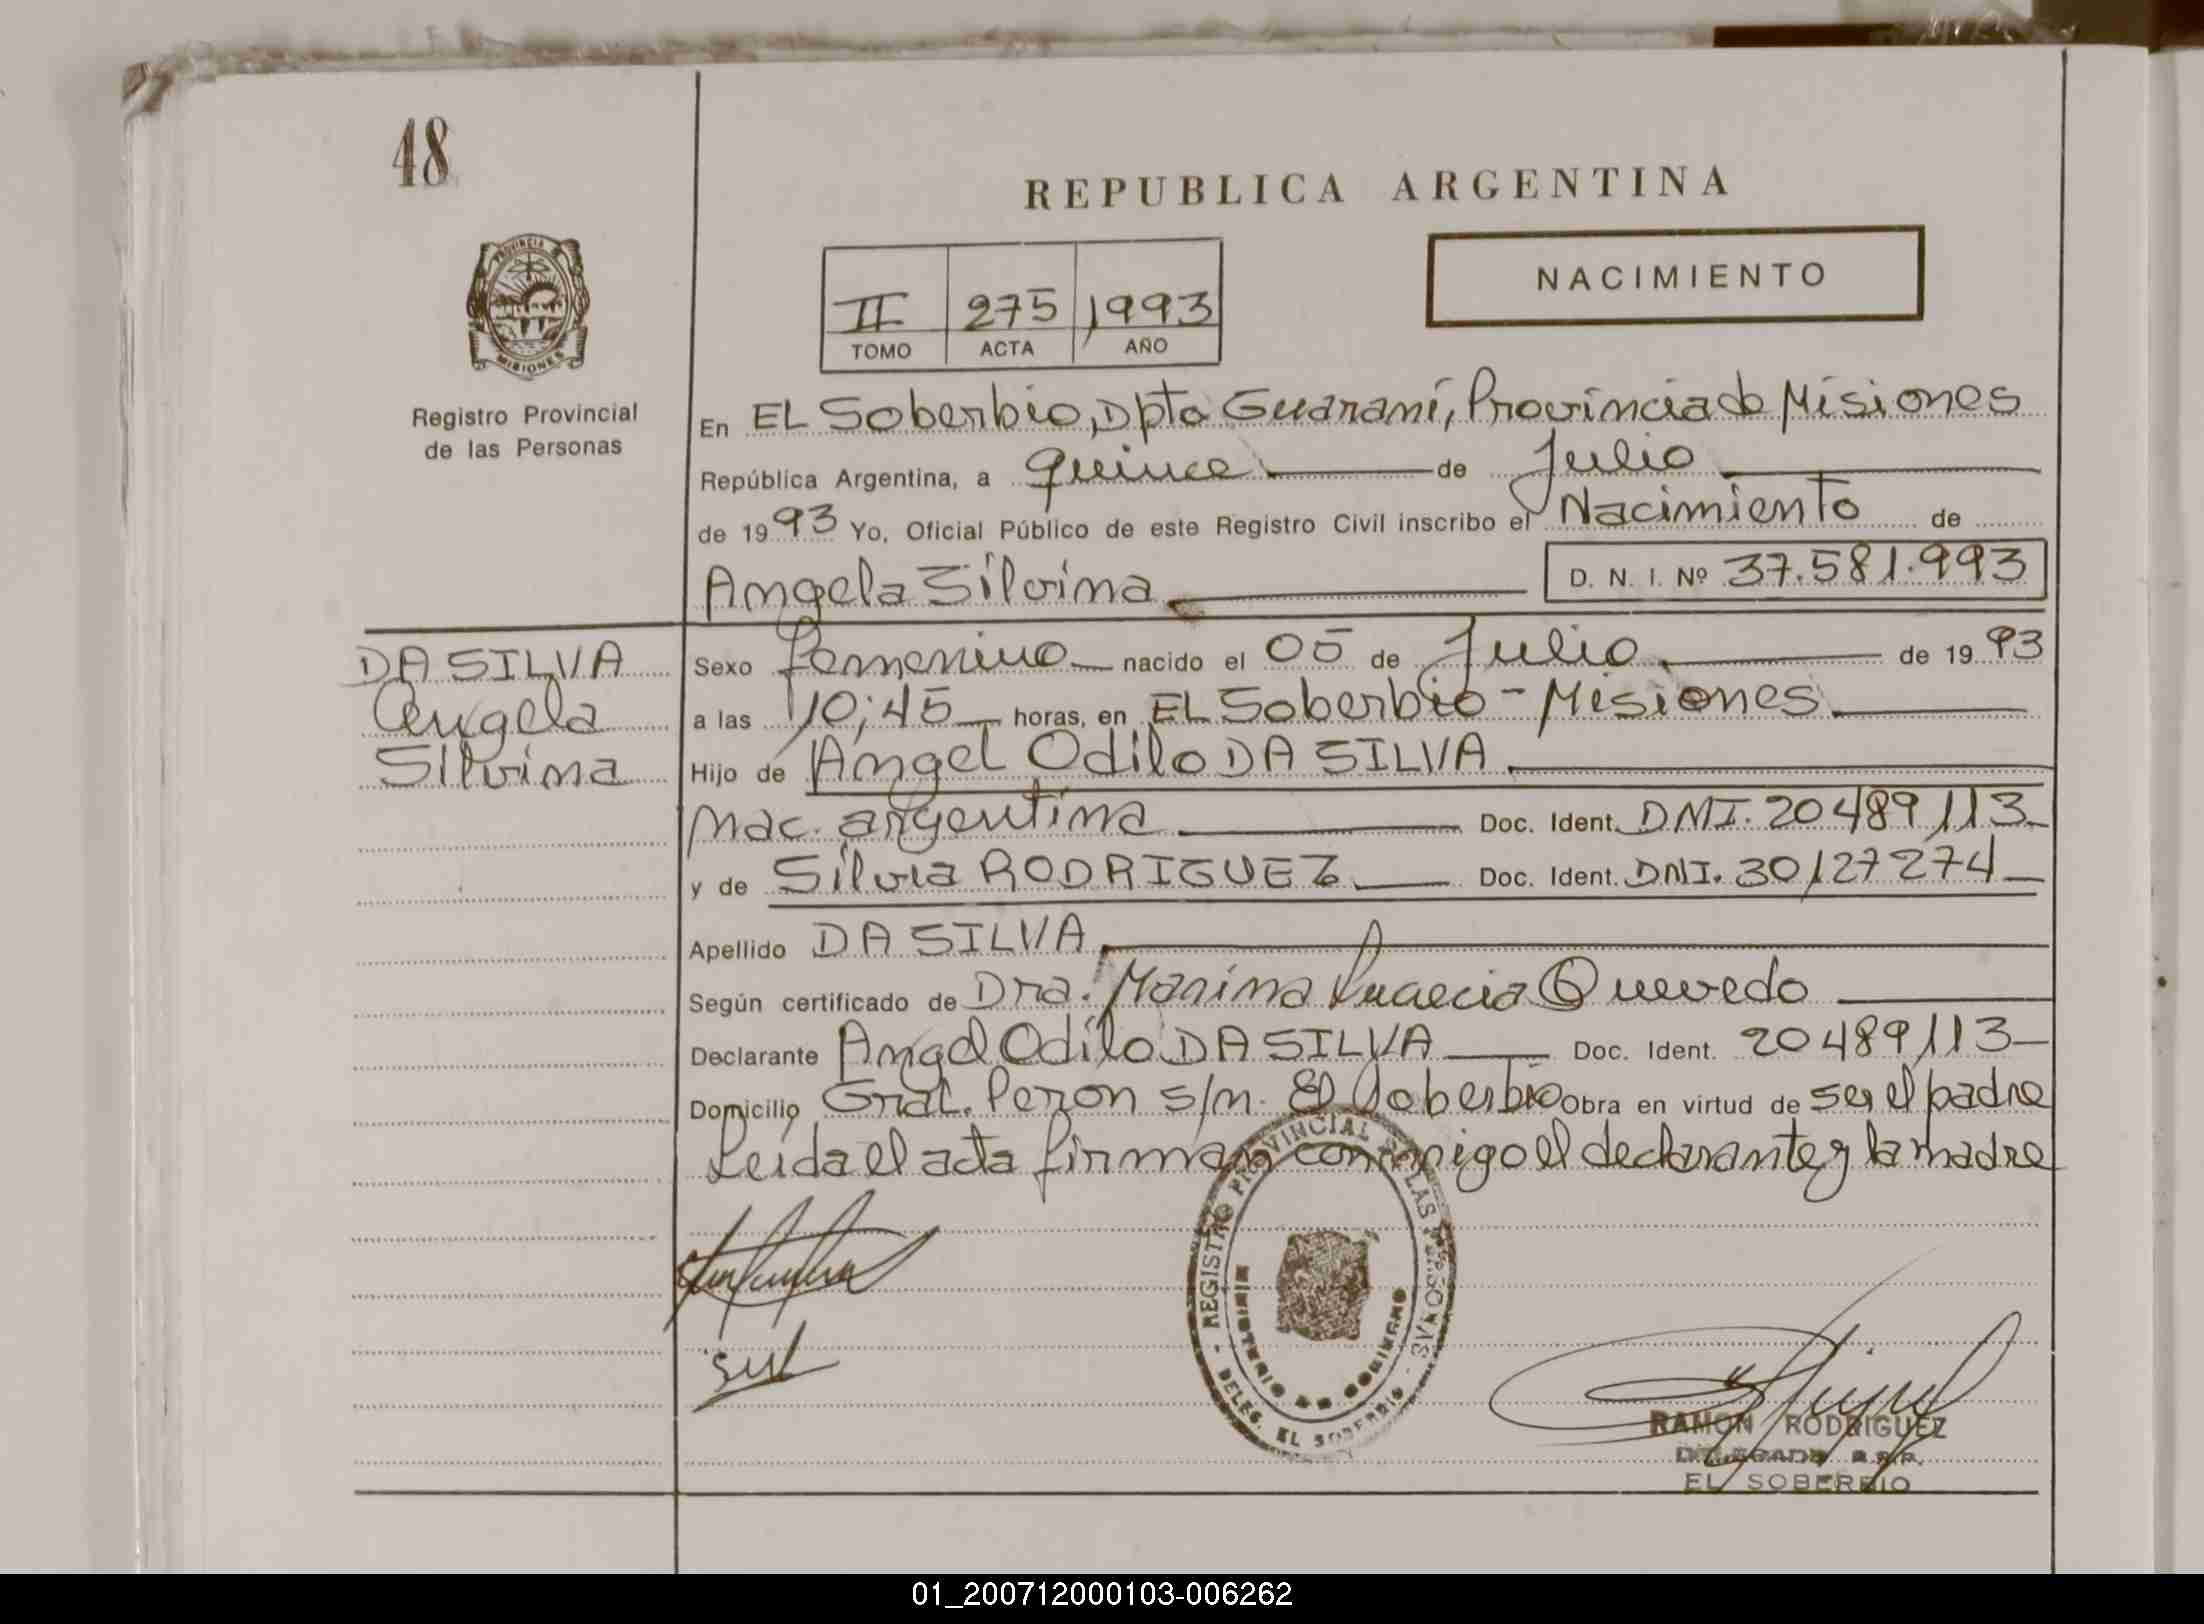 48
REPUBLICA ARGENTINA
NACIMIENTO
PROVINCIA DE
MISIONES
II 275 1993
TOMO ACTA AÑO
Registro Provincial
de las Personas
En EL Soberbio, Dpto Guaraní, Provincia de Misiones
República Argentina, a quince de Julio
de 1993 Yo, Oficial Público de este Registro Civil inscribo el Nacimiento de
Angela Silvina D. N. I. Nº 37.581.993
DA SILVA
Angela
Silvina
Sexo femenino nacido el 05 de Julio de 1993
a las 10;45 horas, en EL Soberbio - Misiones
Hijo de Angel Odilo DA SILVA
nac. argentina Doc. Ident. DNI. 20489113
y de Silvia RODRIGUEZ Doc. Ident. DNI. 30127274
Apellido DA SILVA
Según certificado de Dra. Marina Lucrecia Quevedo
Declarante Angel Odilo DA SILVA Doc. Ident. 20489113
Domicilio Gral. Peron s/n. El Soberbio Obra en virtud de ser el padre
Leida el acta firman conmigo el declarante y la madre
- REGISTRO PROVINCIAL DE LAS PERSONAS -
MINISTERIO DE GOBIERNO
DELEG. EL SOBERBIO
RAMON RODRIGUEZ
DELEGADO R.P.P.
EL SOBERBIO
01_200712000103-006262